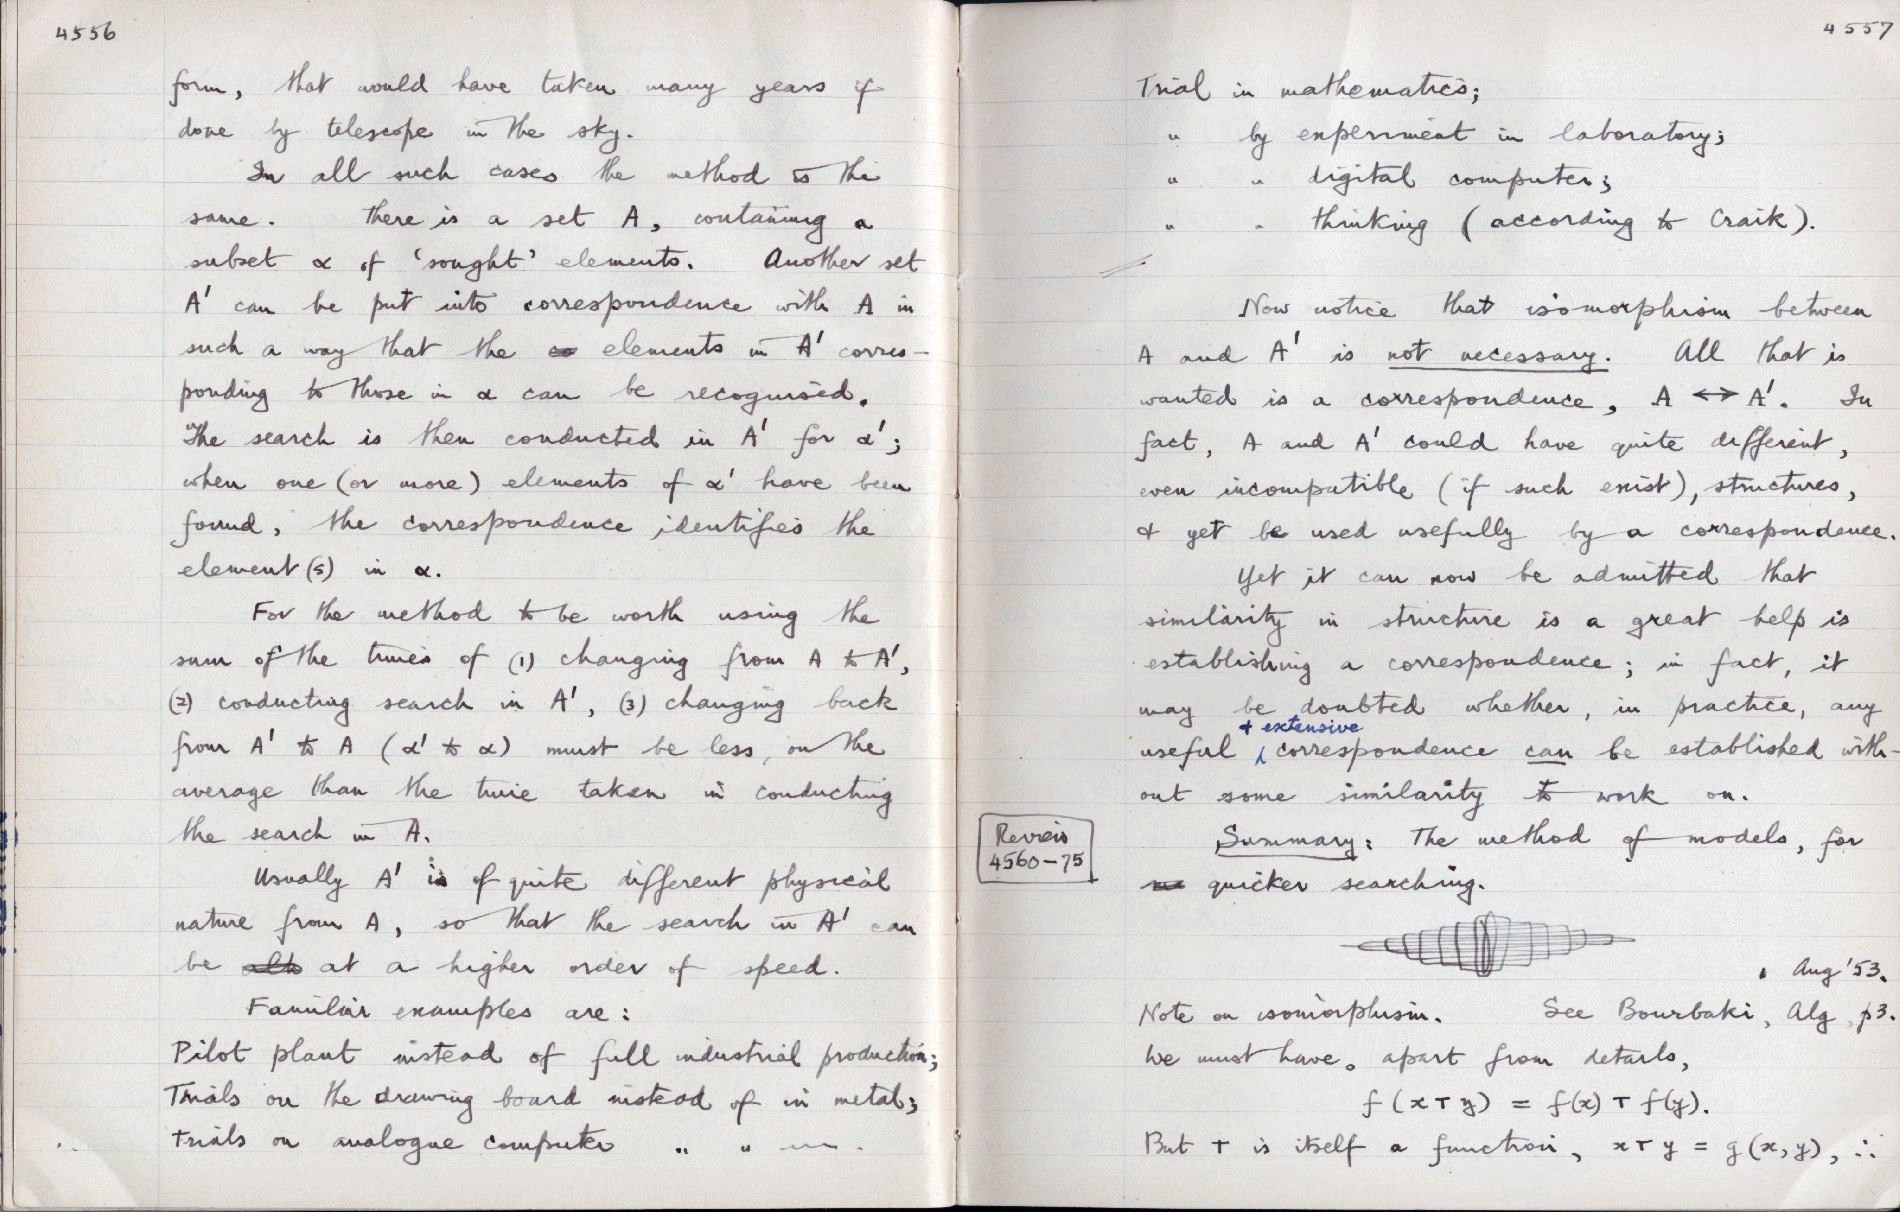 4556
form, that would have taken many years if
done by telescope in the sky.
In all such cases the method is the
same. There is a set A, containing a
subset α of 'sought' elements. Another set
A' can be put into correspondence with A in
such a way that the elements in A' corres-
ponding to those in α can be recognised.
The search is then conducted in A' for α';
when one (or more) elements of α' have been
found, the correspondence identifies the
element(s) in α.
For the method to be worth using the
sum of the times of (1) changing from A to A',
(2) conducting search in A', (3) changing back
from A' to A (α' to α) must be less, on the
average than the time taken in conducting
the search in A.
Usually A' is of quite different physical
nature from A, so that the search in A' can
be at a higher order of speed.
Familiar examples are:
Pilot plant instead of full industrial production;
Trials on the drawing board instead of in metal;
Trials on analogue computer " " — .
4557
Trial in mathematics;
" by experiment in laboratory;
" " digital computer;
" " thinking (according to Craik).
Now notice that isomorphism between
A and A' is not necessary. All that is
wanted is a correspondence, A ↔ A'. In
fact, A and A' could have quite different,
even incompatible (if such exist), structures,
& yet be used usefully by a correspondence.
Yet it can now be admitted that
similarity in structure is a great help is
establishing a correspondence; in fact, it
may be doubted whether, in practice, any
+ extensive
useful correspondence can be established with-
out some similarity to work on.
Summary: The method of models, for
quicker searching.
Review
4560-75
Aug '53.
Note on isomorphism. See Bourbaki, Alg, p3.
We must have, apart from details,
f(x ⊤ y) = f(x) ⊤ f(y).
But ⊤ is itself a function, x ⊤ y = g(x, y), ∴